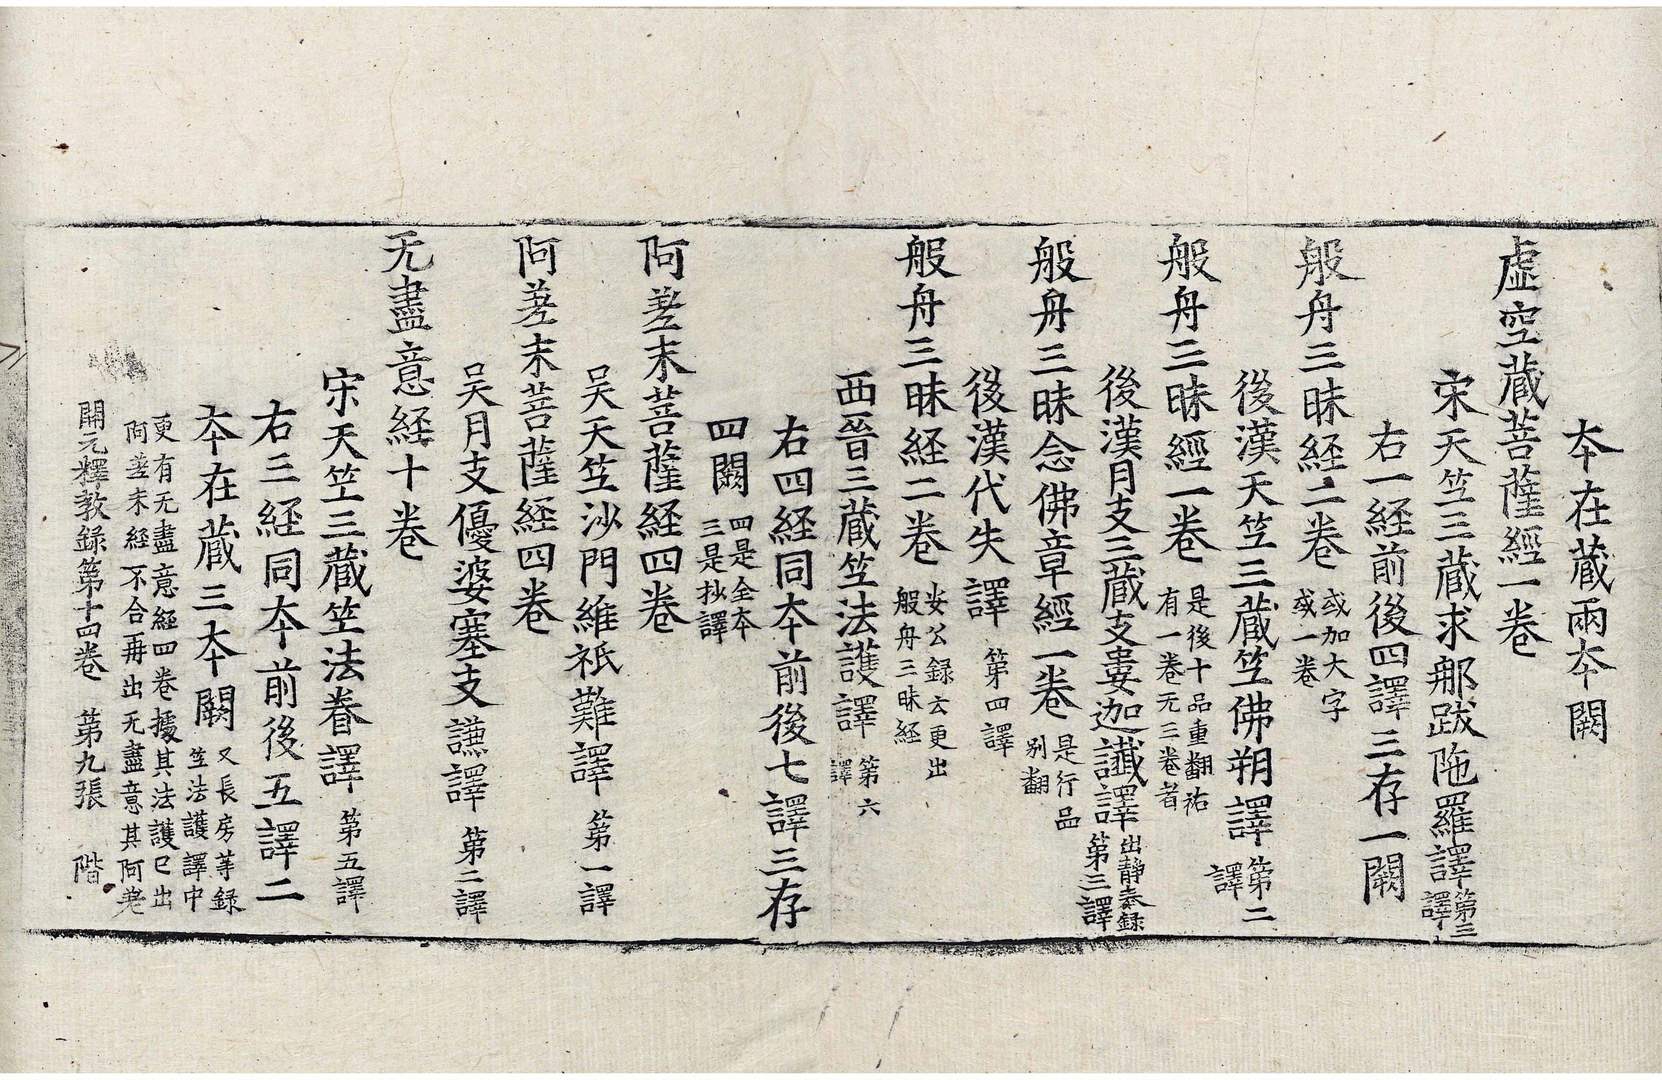 本在藏兩本闕
虛空藏菩薩經一卷
宋天竺三藏求郍跋陁羅譯第三譯
右一經前後四譯三存一闕
般舟三昧経二卷或加大字或一卷
後漢天竺三藏竺佛朔譯第二譯
般舟三昧經一卷是後十品重翻祐有一卷无三卷者
後漢月支三藏支婁迦讖譯出静泰録第三譯
般舟三昧念佛章經一卷是行品别翻
後漢代失譯第四譯
般舟三昧経二卷安公録云更出般舟三昧経
西晉三藏竺法護譯第六譯
右四経同本前後七譯三存
四闕四是全本三是抄譯
阿差末菩薩経四卷
吴天竺沙門維祇難譯第一譯
阿差末菩薩経四卷
吴月支優婆塞支謙譯第二譯
无盡意経十卷
宋天竺三藏竺法眷譯第五譯
右三経同本前後五譯二
本在藏三本闕又長房等録竺法護譯中
更有无盡意経四卷據其法護已出阿差末経不合再出无盡意其阿差
開元釋教録第十四卷　第九張　階